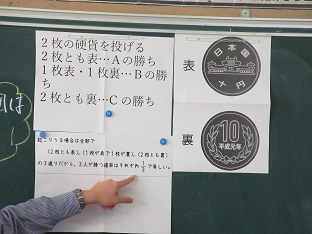 2枚の硬貨を投げる
2枚とも表…Aの勝ち
1枚表・1枚裏…Bの勝
ち
2枚とも裏…Cの勝ち
起こりうる場合は全部で
(2枚とも表), (1枚が表で1枚が裏), (2枚とも裏)
の3通りだから、3人が勝つ確率はそれぞれ 1/3 で等しい。
表
日本国
十円
裏
10
平成元年
は